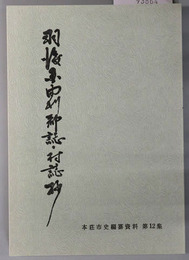 羽後国由利郡誌・村誌抄
本荘市史編纂資料 第12集